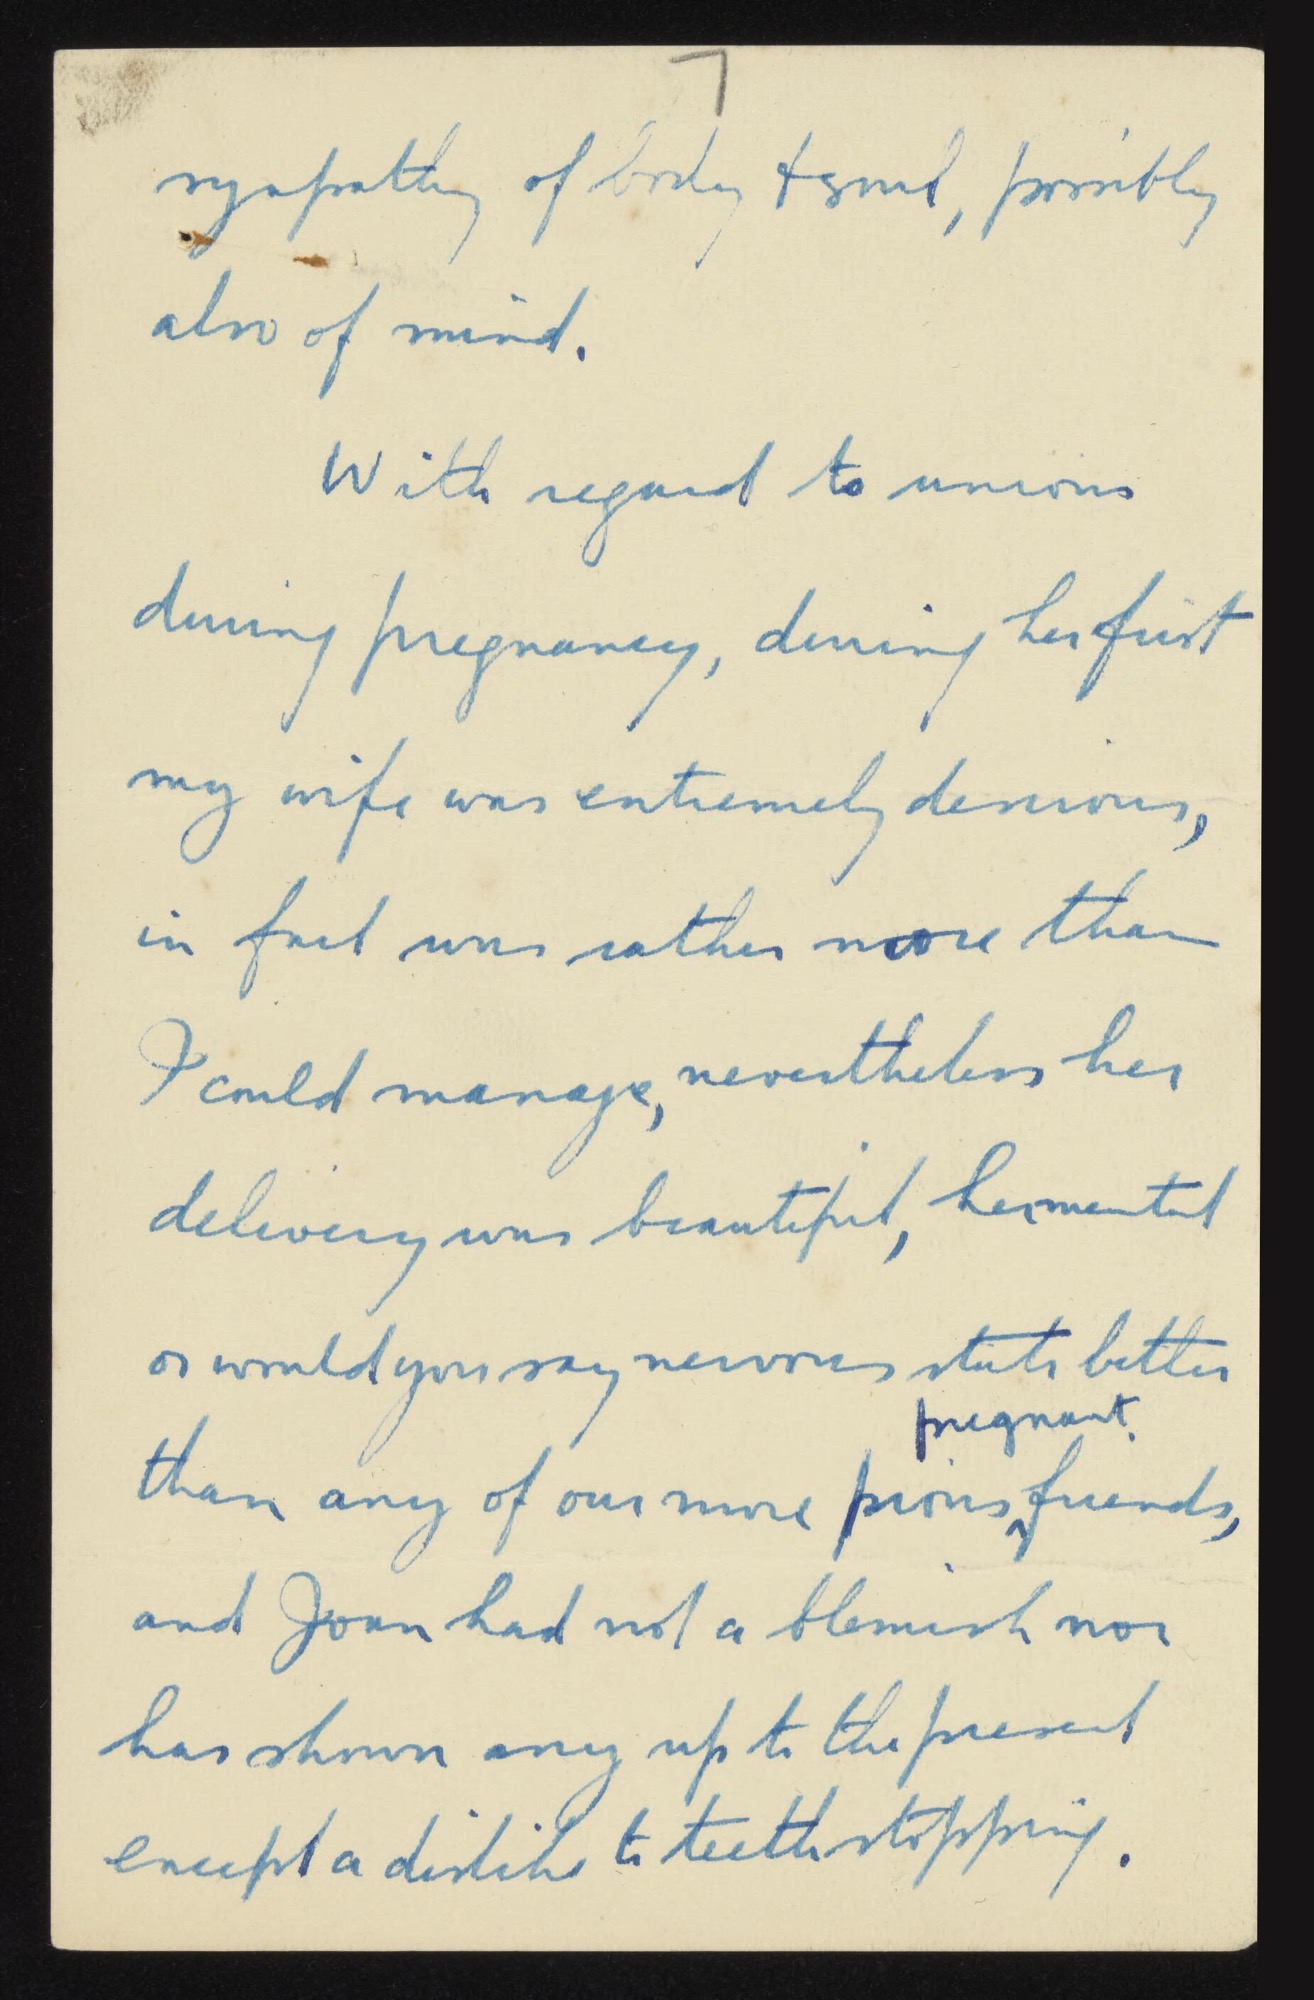 7
sympathy of body & soul, possibly
also of mind.
With regard to unions
during pregnancy, during her first
my wife was extremely desirous,
in fact was rather more than
I could manage, nevertheless her
delivery was beautiful, her mental
or would you say nervous state better
pregnant
than any of our more pious friends,
and Joan had not a blemish nor
has shown any up to the present
except a dislike to teeth stopping.